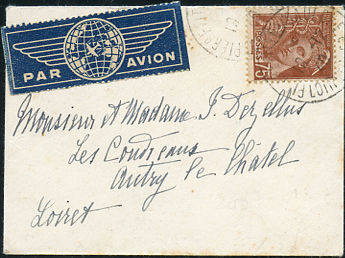 PAR AVION
POSTES
75
Monsieur et Madame J. Dezellus
Les Coudreaux
Autry le Châtel
Loiret